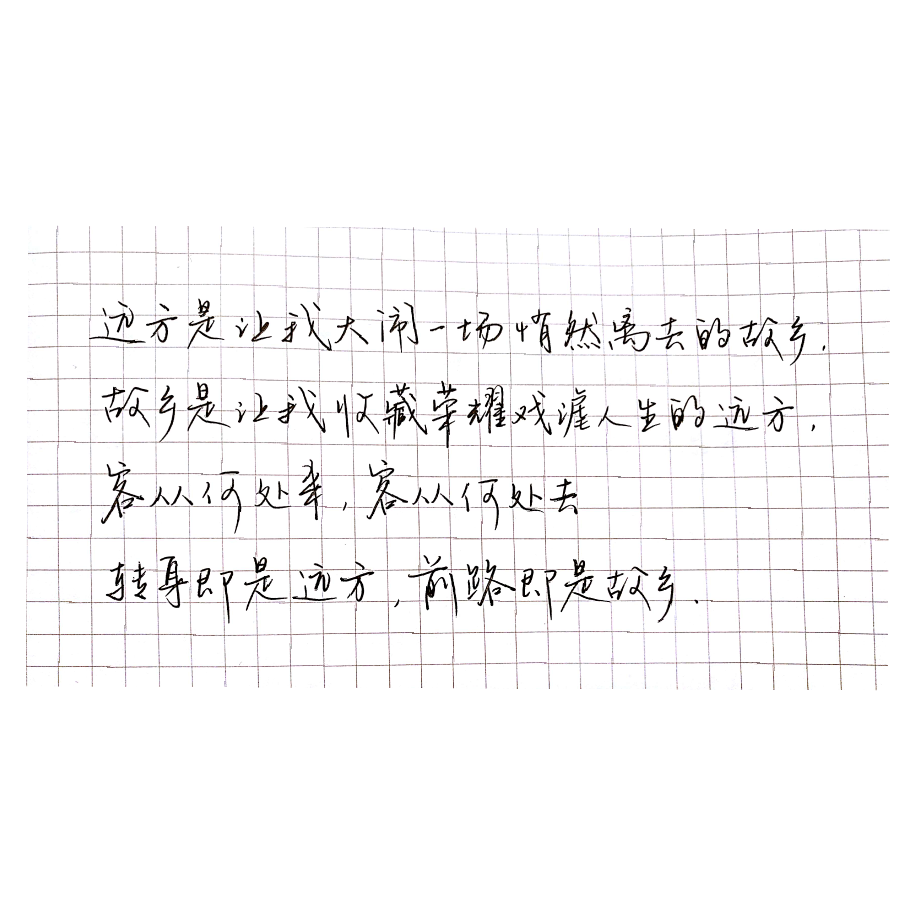 远方是让我大闹一场悄然离去的故乡.
故乡是让我收藏荣耀戏谑人生的远方,
客从何处来,客从何处去
转身即是远方,前路即是故乡.